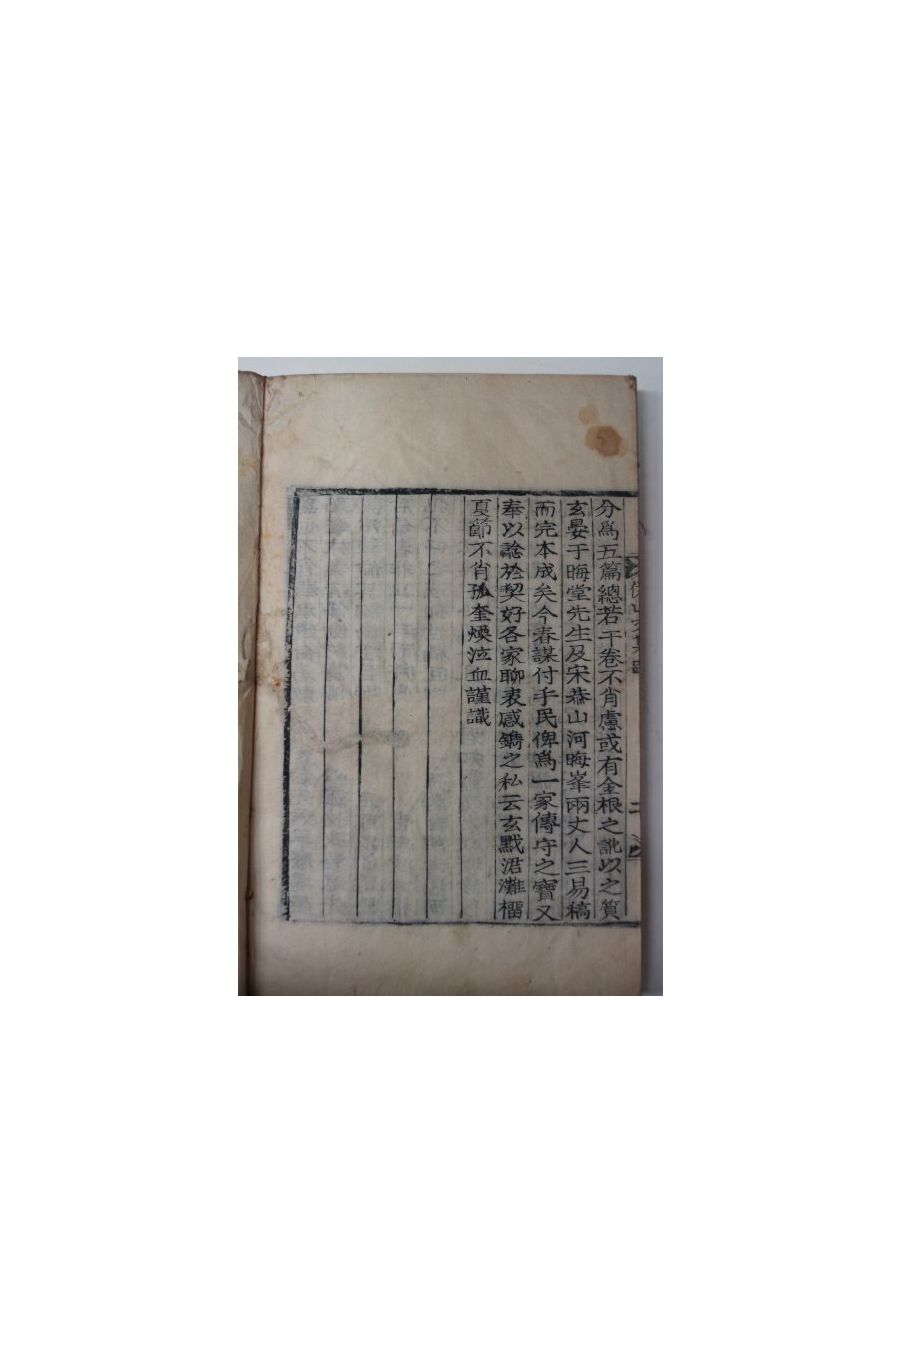 分爲五篇總若干卷不肖慮或有金根之訛以之質
玄晏于晦堂先生及宋恭山河晦峯兩丈人三易稿
而完本成矣今春謀付手民俾爲一家傳守之寶又
奉以諗於契好各家聊表感鐫之私云玄黓涒灘榴
夏節不肖孤奎煥泣血謹識